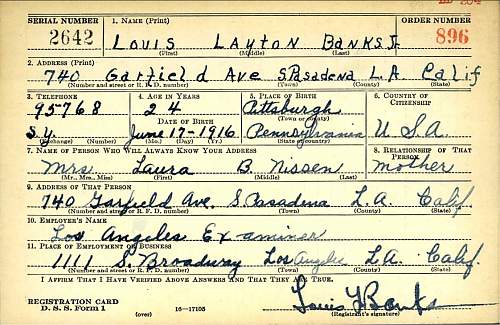 SERIAL NUMBER 1. NAME (Print) ORDER NUMBER
2642 LOUIS LAYTON BANKS Jr. 896
(First) (Middle) (Last)
2. ADDRESS (Print)
740 Garfield Ave S. Pasadena L.A. Calif
(Number and street or R. F. D. number) (Town) (County) (State)
3. TELEPHONE 4. AGE IN YEARS 5. PLACE OF BIRTH 6. COUNTRY OF CITIZENSHIP
95768 24 Pittsburgh
DATE OF BIRTH (Town or county)
S.Y. June-17-1916 Pennsylvania U S A
(Exchange) (Number) (Mo.) (Day) (Yr.) (State or country)
7. NAME OF PERSON WHO WILL ALWAYS KNOW YOUR ADDRESS 8. RELATIONSHIP OF THAT PERSON
Mrs. Laura B. Nissen mother
(Mr., Mrs., Miss) (First) (Middle) (Last)
9. ADDRESS OF THAT PERSON
740 Garfield Ave. S. Pasadena L.A. Calif.
(Number and street or R. F. D. number) (Town) (County) (State)
10. EMPLOYER'S NAME
Los Angeles Examiner
11. PLACE OF EMPLOYMENT OR BUSINESS
1111 S. Broadway Los Angeles L.A. Calif.
(Number and street or R. F. D. number) (Town) (County) (State)
I AFFIRM THAT I HAVE VERIFIED ABOVE ANSWERS AND THAT THEY ARE TRUE.
Louis L Banks
REGISTRATION CARD
D. S. S. Form 1 (over) 16—17105 (Registrant's signature)